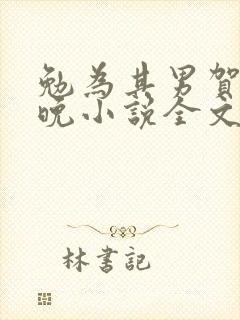 勉為其男賀
晚小說全文
林書記